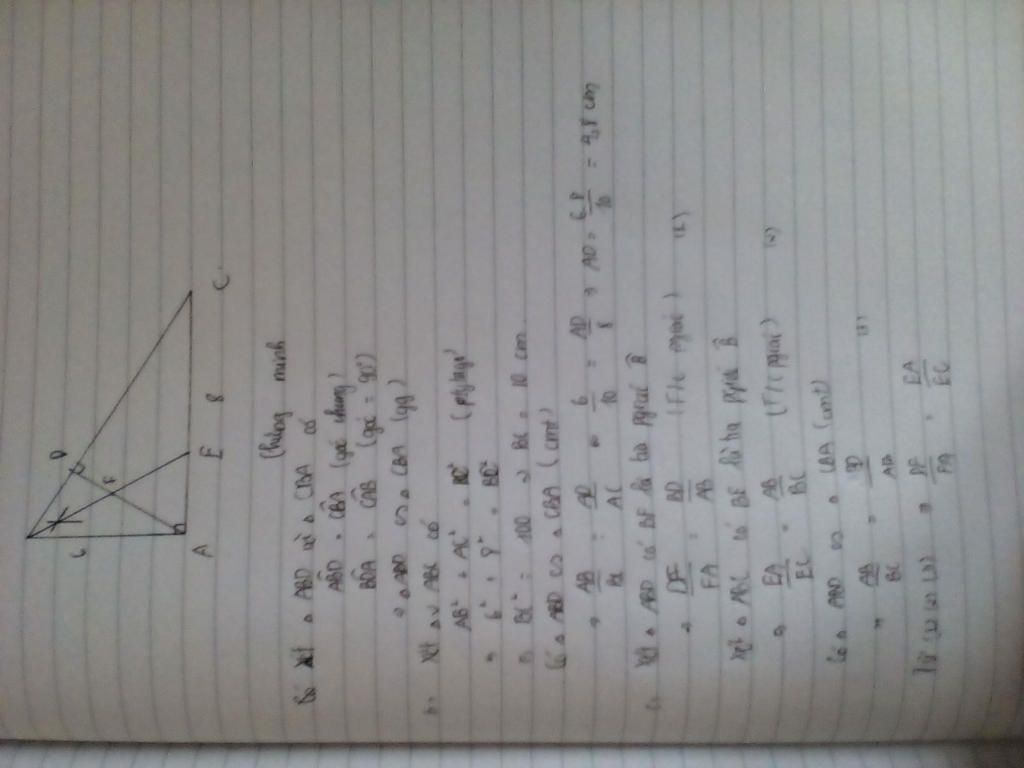 D
6
F
A E 8 C
Chứng minh
a, Xét Δ ABD và Δ CBA có
ABD = CBA (góc chung)
BDA = CAB (góc = 90°)
=> Δ ABD ∽ Δ CBA (gg)
b, Xét Δ v ABC có
AB² + AC² = BC² (pytago)
=> 6² + 8² = BC²
=> BC² = 100 => BC = 10 cm
Có Δ ABD ∽ Δ CBA (cmt)
=> AB/BC = AD/AC => 6/10 = AD/8 => AD = 6.8/10 = 4,8 cm
c, Xét Δ ABD có BF là tia pgiác B
=> DF/FA = BD/AB (F/c pgiác) (1)
Xét Δ ABC có BE là tia pgiác B
=> EA/EC = AB/BC (F/c pgiác) (2)
Có Δ ABD ∽ Δ CBA (cmt)
=> AB/BC = BD/AB (3)
Từ (1) (2) (3) => DF/FA = EA/EC